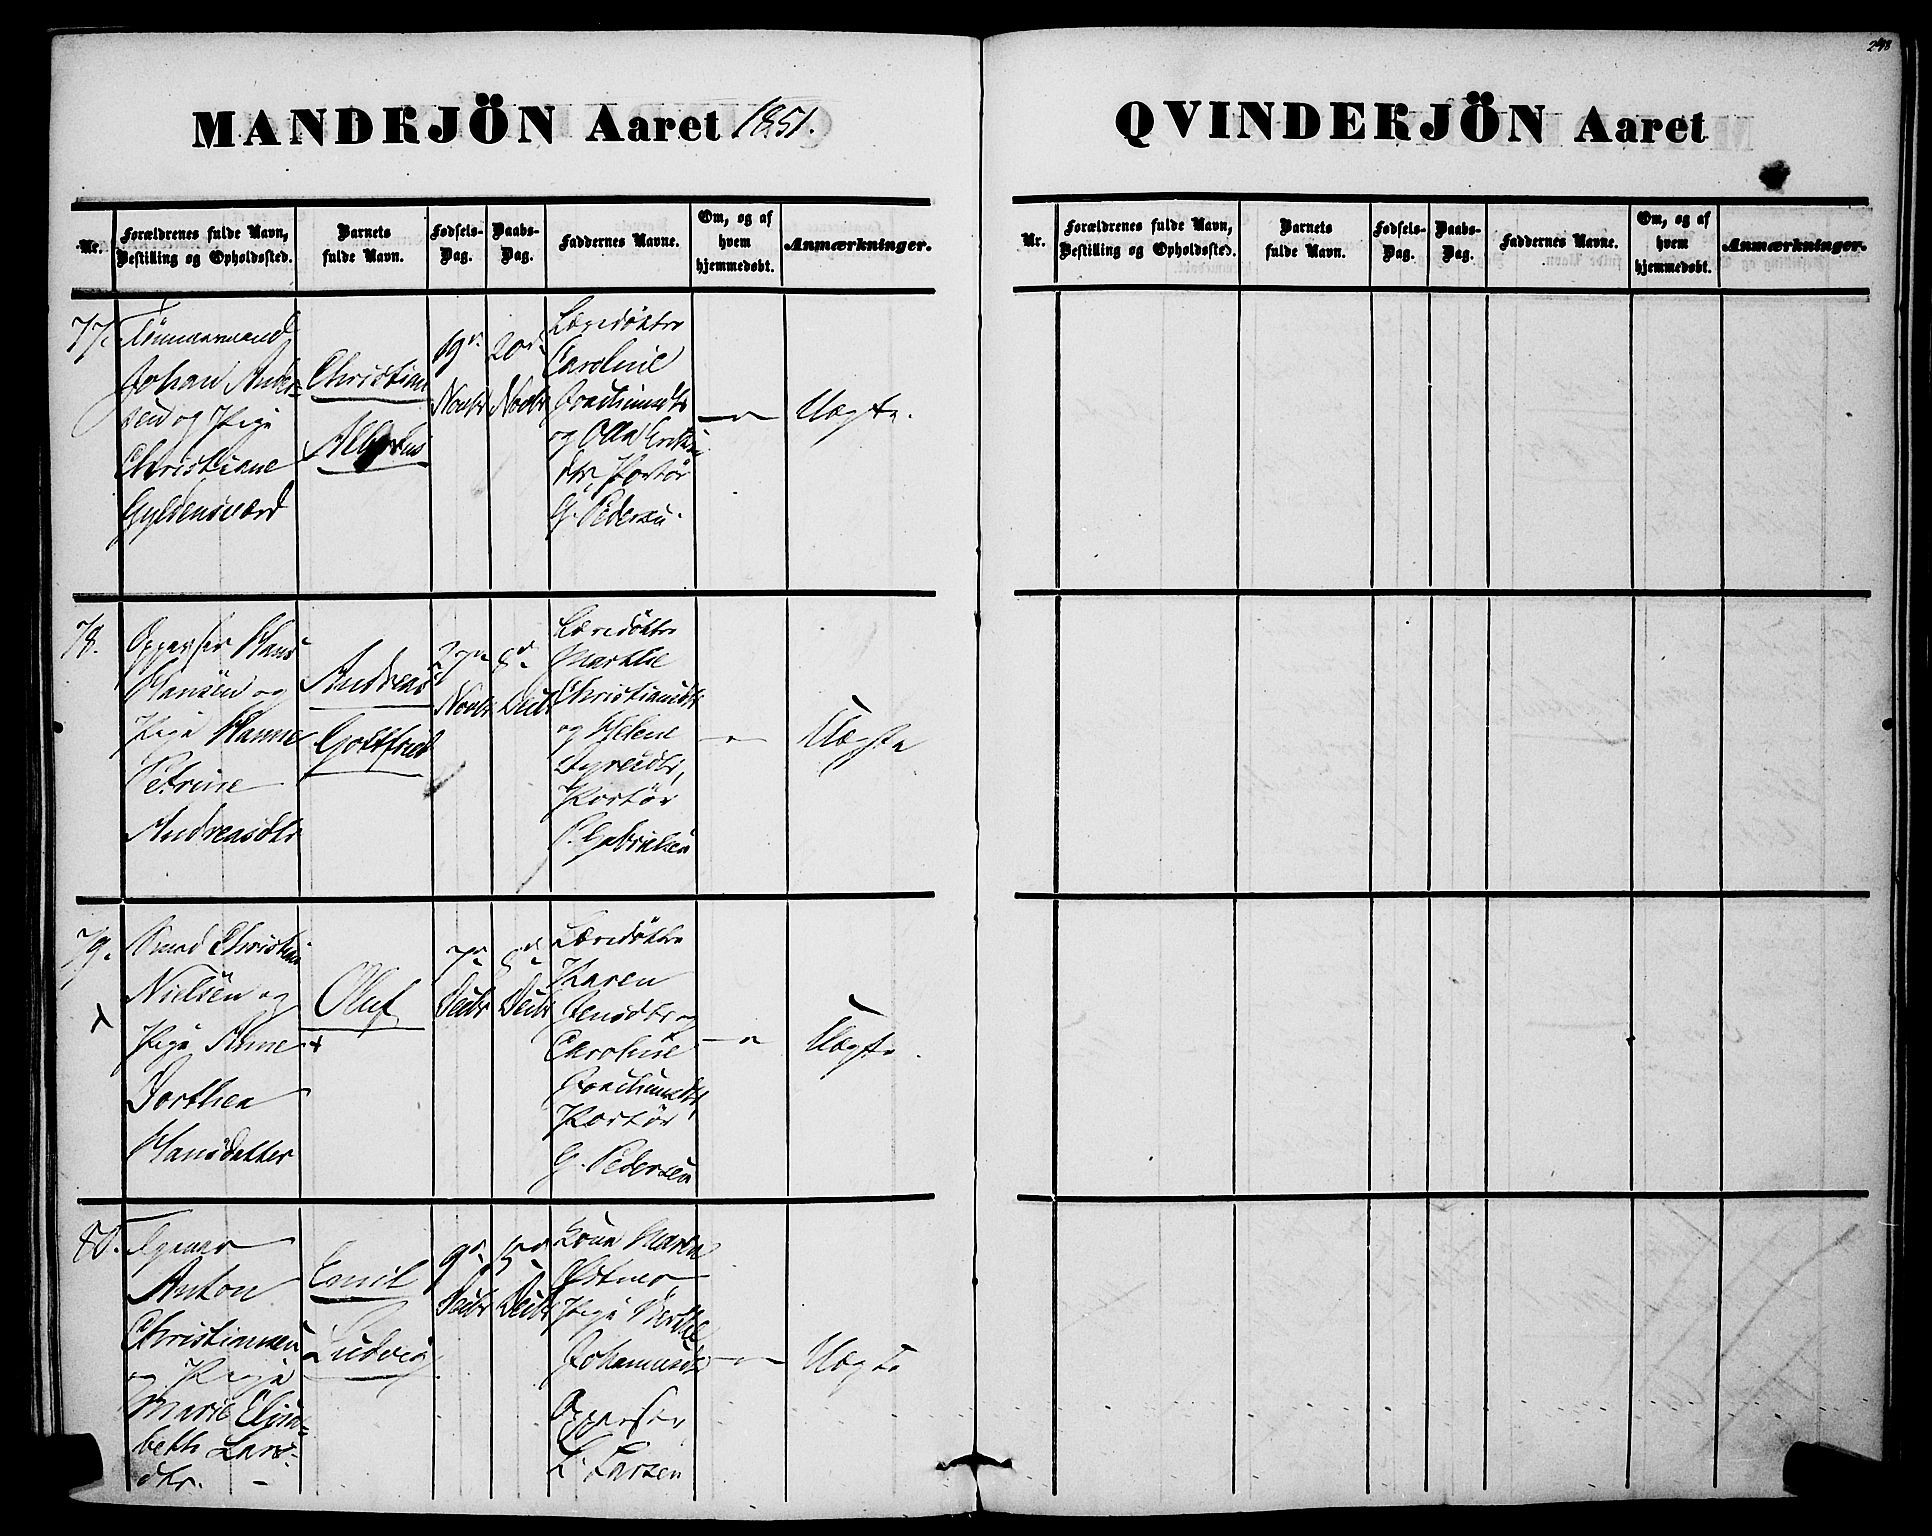 248
MANDKJÖN Aaret 1851.
Nr.
Forældrenes fulde Navn,
Bestilling og Opholdssted.
Barnets
fulde Navn.
Fødsels-
Dag.
Daabs-
Dag.
Faddernes Navne.
Om, og af
hvem
hjemmedøbt.
Anmærkninger.
77.
Tømmermand
Johan Ander-
sen og Pige
Christiane
Gyldensværd
Christian
Albertus
19de
Novbr
20de
Novbr
Læredøttre
Caroline
Joachimsdtr
og Olla
dtr, Portør
G. Pedersen.
—"—
Uægte.
78.
Oppasser Hans
Hansen og
Pige Hanne
Petrine
Andreasdtr
Andreas
Gottfried
27de
Novbr
8de
Decbr
Læredøttre
Marthe
Christiansdtr
og Helene
Portør
P. Gabrielsen
—"—
Uægte
79.
Christian
Nielsen og
Pige Anne
Dorthea
Hansdatter
Oluf
+
7de
Decbr
8de
Decbr
Læredøttre
Karen
Jensdtr og
Caroline
Joachimsdtr,
Portør
G. Pedersen
—"—
Uægte.
80.
Anton
Christiansen
og Pige
Marie Elisa-
beth Lars-
dtr. —
Emil
Ludvig
9de
Decbr
15de
Decbr
Kone Maren
Pige Berthe
Johannesdtr
Oppasser
L. Larsen
—"—
Uægte
QVINDEKJÖN Aaret
Nr.
Forældrenes fulde Navn,
Bestilling og Opholdssted.
Barnets
fulde Navn.
Fødsels-
Dag.
Daabs-
Dag.
Faddernes Navne.
Om, og af
hvem
hjemmedøbt.
Anmærkninger.